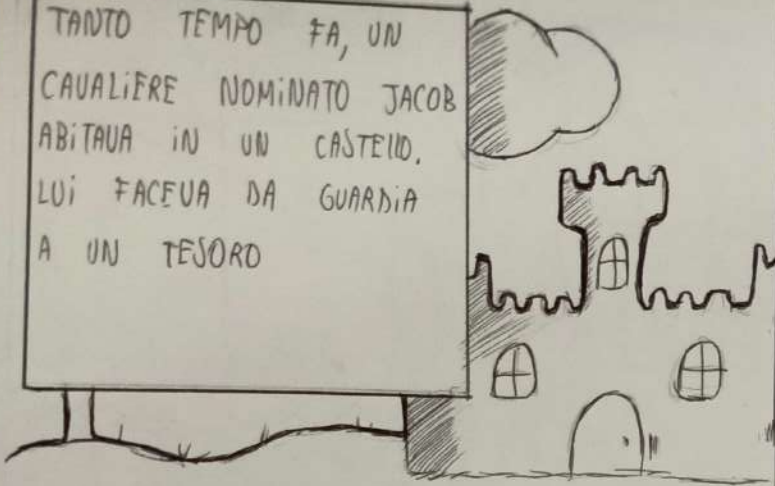 TANTO TEMPO FA, UN
CAVALIERE NOMINATO JACOB
ABITAVA IN UN CASTELLO.
LUI FACEVA DA GUARDIA
A UN TESORO